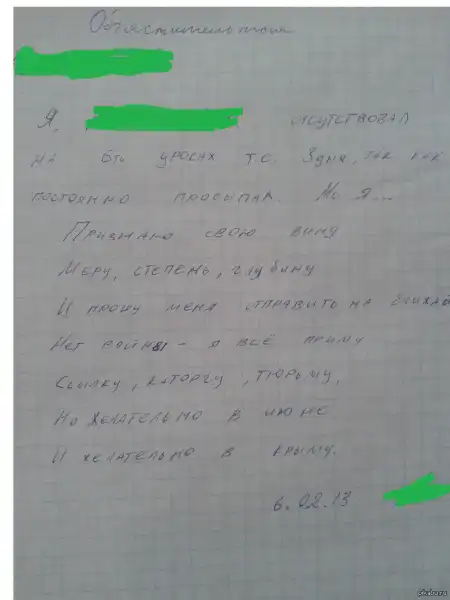 Объяснительная
Я, отсутствовал
на 6ти уроках т.е. 3 дня, так как
постоянно просыпал. Но я...
Признаю свою вину
Меру, степень, глубину
И прошу меня отправить на ближай
Нет войны - я всё приму
Ссылку, каторгу, тюрьму,
Но желательно в июне
И желательно в крыму.
6.02.13
pikabu.ru